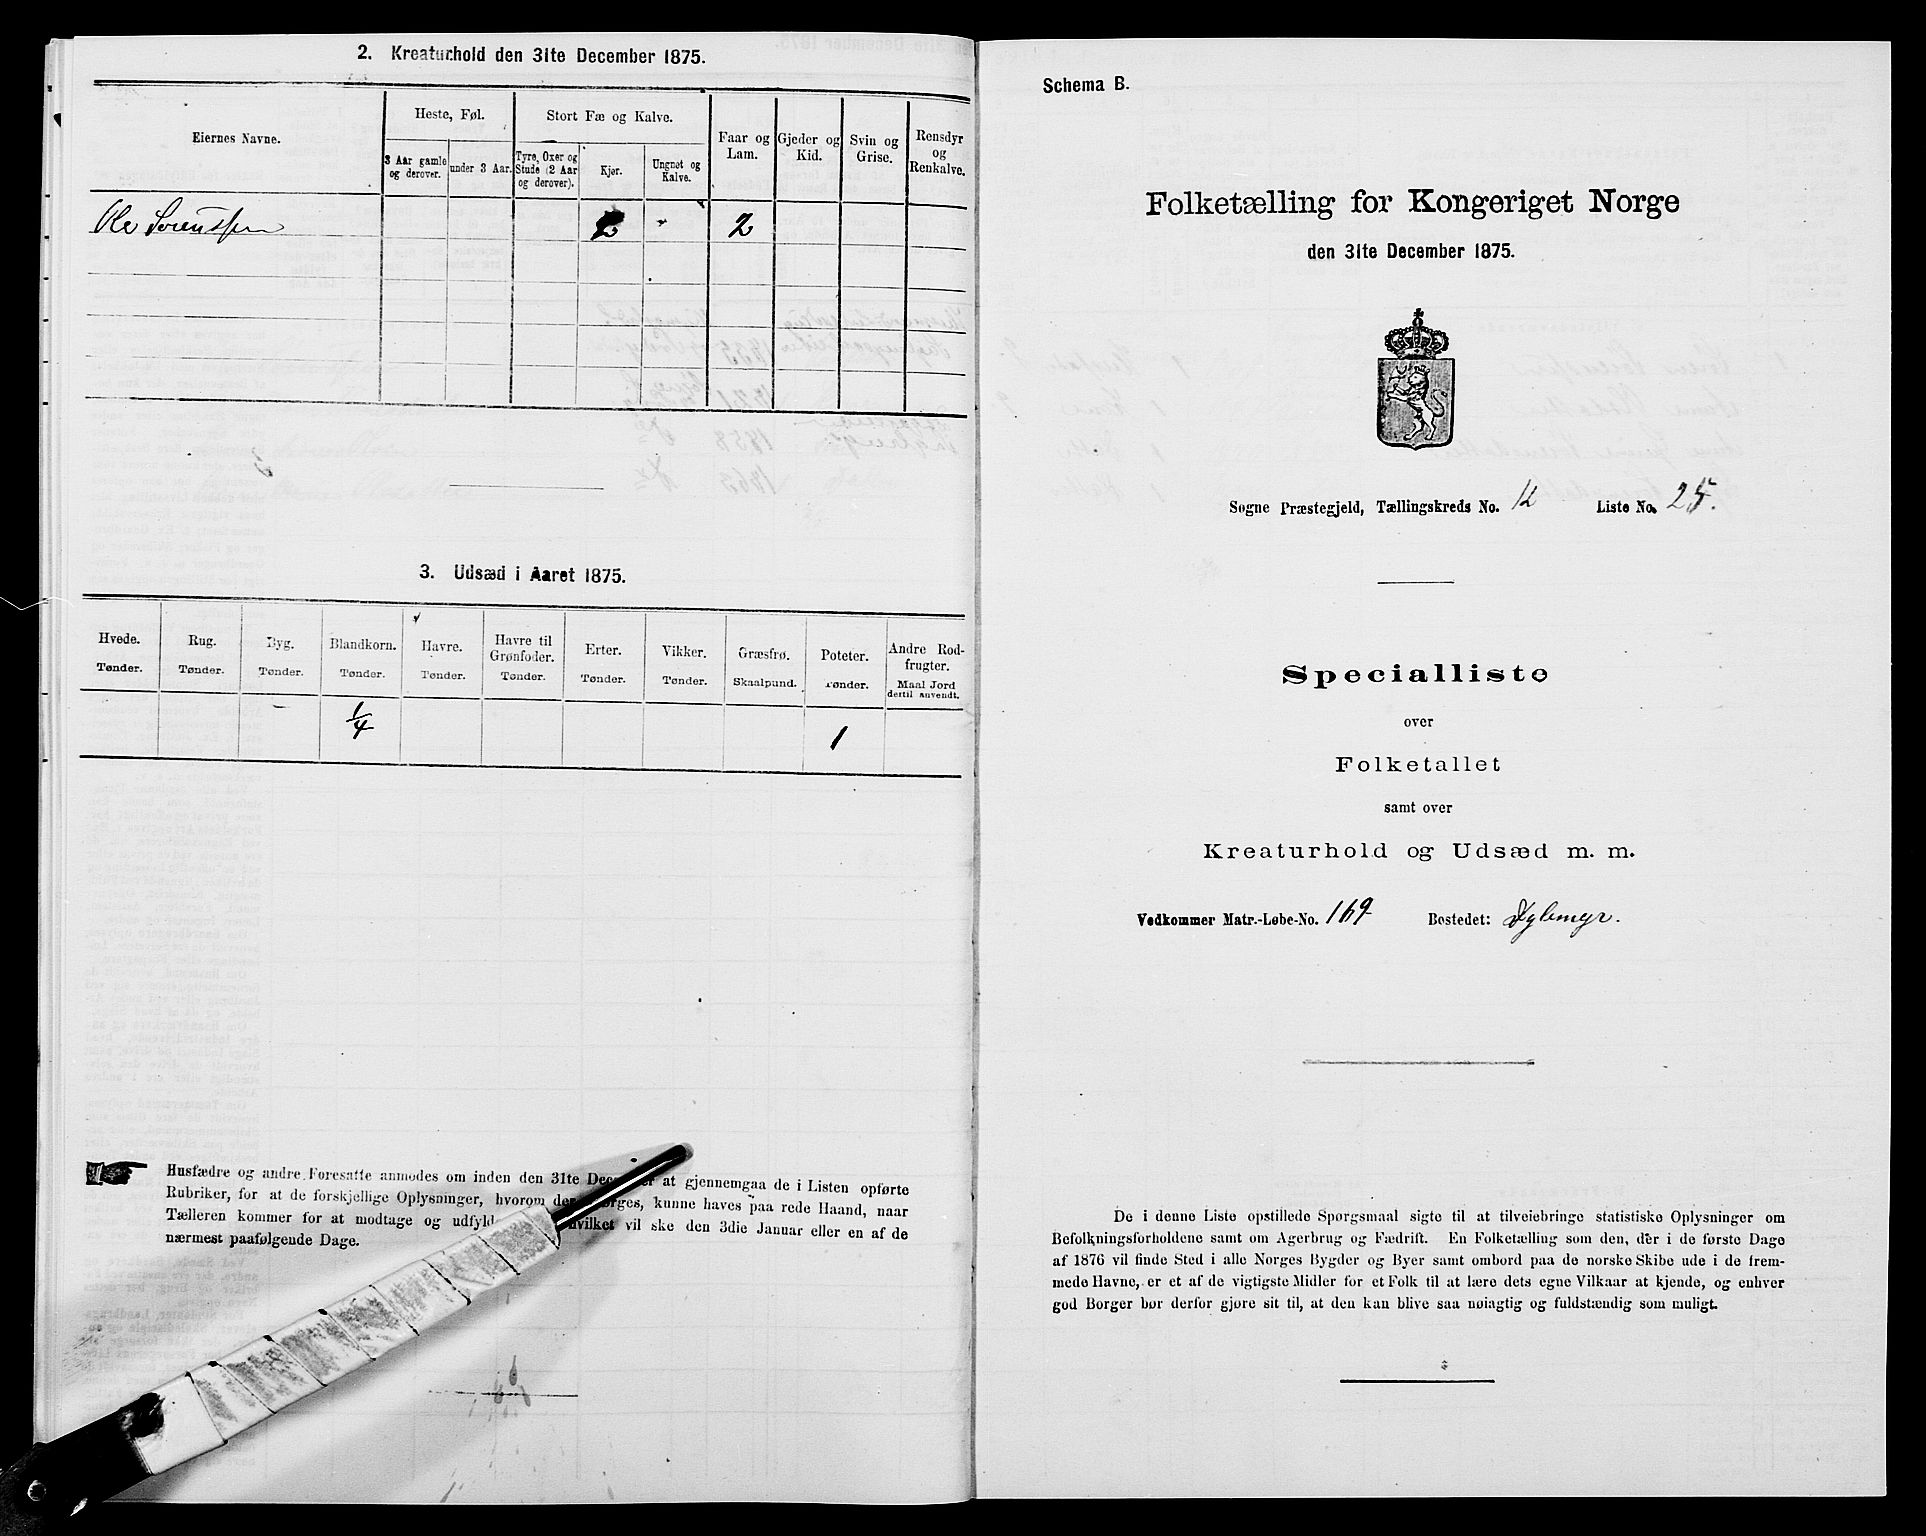 2. Kreaturhold den 31te December 1875.
Eiernes Navne.
Heste, Føl.
Stort Fæ og Kalve.
Faar og Lam.
Gjeder og Kid.
Svin og Grise.
Rensdyr og Renkalve.
3 Aar gamle og derover.
under 3 Aar.
Tyre, Oxer og Stude (2 Aar og derover).
Kjør.
Ungnøt og Kalve.
Ole Sørenssen 2 " 2
3. Udsæd i Aaret 1875.
Hvede. Rug. Byg. Blandkorn. Havre. Havre til Grønfoder. Erter. Vikker. Græsfrø. Poteter. Andre Rodfrugter.
Tønder. Tønder. Tønder. Tønder. Tønder. Tønder. Tønder. Tønder. Skaalpund. Tønder. Maal Jord dertil anvendt.
1/4 1
Husfædre og andre Foresatte anmodes om inden den 31te at gjennemgaa de i Listen opførte
Rubriker, for at de forskjellige Oplysninger, hvorom der kunne haves paa rede Haand, naar
Tælleren kommer for at modtage og hvilket vil ske den 3die Januar eller en af de
nærmest paafølgende Dage.
Schema B.
Folketælling for Kongeriget Norge
den 31te December 1875.
Sogne Præstegjeld, Tællingskreds No. 12 Liste No. 25.
Specialliste
over
Folketallet
samt over
Kreaturhold og Udsæd m. m.
Vedkommer Matr.-Løbe-No. 169 Bostedet:
De i denne Liste opstillede Spørgsmaal sigte til at tilveiebringe statistiske Oplysninger om
Befolkningsforholdene samt om Agerbrug og Fædrift. En Folketælling som den, der i de første Dage
af 1876 vil finde Sted i alle Norges Bygder og Byer samt ombord paa de norske Skibe ude i de frem-
mede Havne, er et af de vigtigste Midler for et Folk til at lære dets egne Vilkaar at kjende, og enhver
god Borger bør derfor gjøre sit til, at den kan blive saa nøiagtig og fuldstændig som muligt.